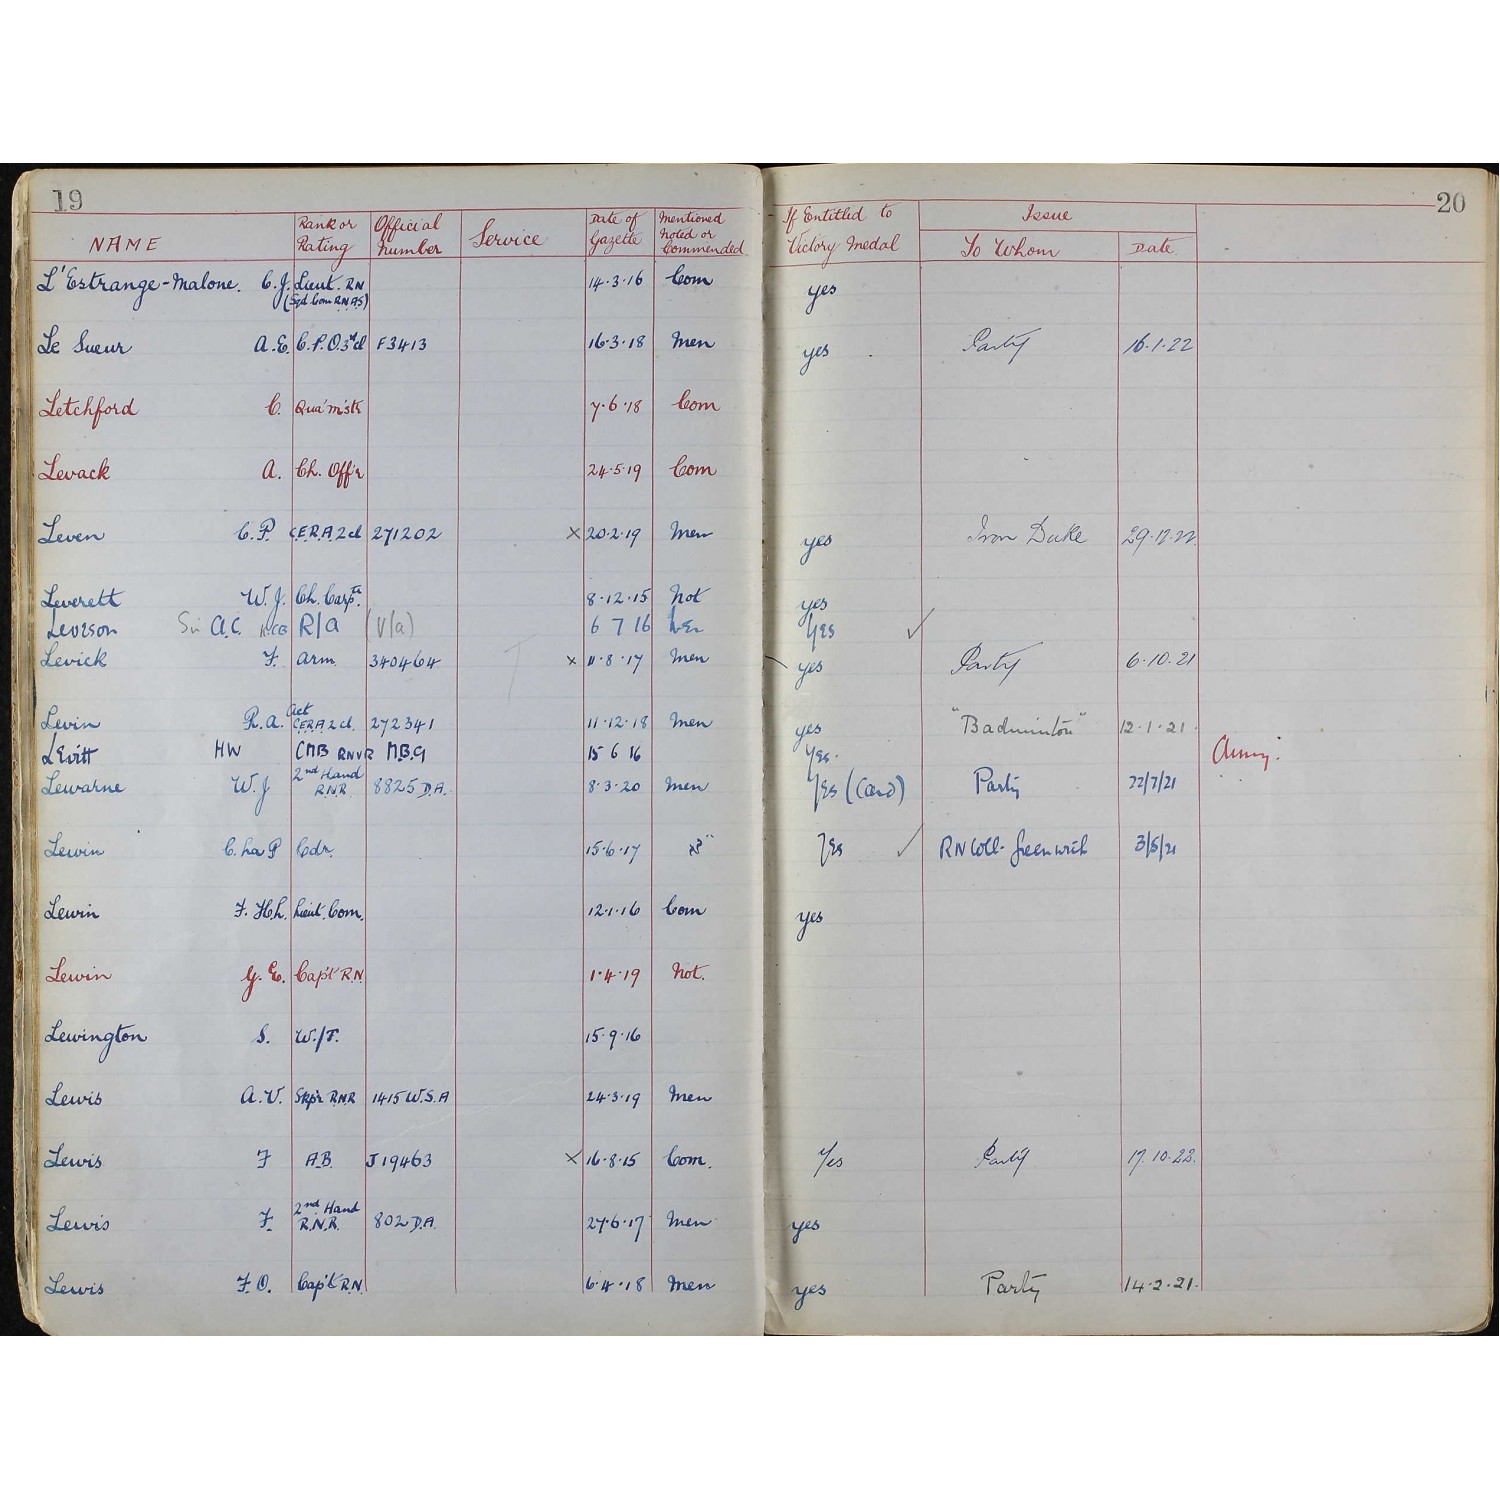 19
20
NAME Rank or Rating Official Number Service Date of Gazette Mentioned Noted or Commended If Entitled to Victory Medal Issue To Whom Date
L'Estrange-Malone. C.J. Lieut. RN (Sqd Com R.N.A.S) 14.3.16 Com yes
Le Sueur A.E. C.P.O.3rd cl F3413 16.3.18 Men yes Party 16.1.22
Letchford C. Qua'm'str 7.6.18 Com
Levack A. Ch. Off'r 24.5.19 Com
Leven C.P. C.E.R.A 2 cl 271202 × 20.2.19 Men yes Iron Duke 29.12.22.
Leverett W.J. Ch. Carptr. 8.12.15 Not yes
Leveson Sir A.C. KCB R/A (V/a) 6 7 16 Yes ✓
Levick F. Arm. 340464 × 11.8.17 Men yes Party 6.10.21
Levin R.A. Act C.E.R.A 2 cl. 272341 11.12.18 Men yes "Badminton" 12.1.21.
Levitt HW CMB RNVR M.B.9 15 6 16 Yes. Army.
Lewarne W.J 2nd Hand R.N.R. 8825 D.A. 8.3.20 Men Yes (Card) Party 22/7/21
Lewin C. La P Cdr. 15.6.17 Yes ✓ RN Coll. Greenwich 3/5/21
Lewin F. H.h. Lieut. Com. 12.1.16 Com yes
Lewin G.E. Cap't R.N. 1.4.19 Not.
Lewington S. W./T. 15.9.16
Lewis A.V. Skp'r R.N.R 1415 W.S.A 24.3.19 Men
Lewis F A.B. J19463 × 16.8.15 Com. Yes Party 17.10.22.
Lewis F. 2nd Hand R.N.R. 802 D.A. 27.6.17 Men yes
Lewis F.O. Cap't R.N. 6.4.18 Men yes Party 14.2.21.